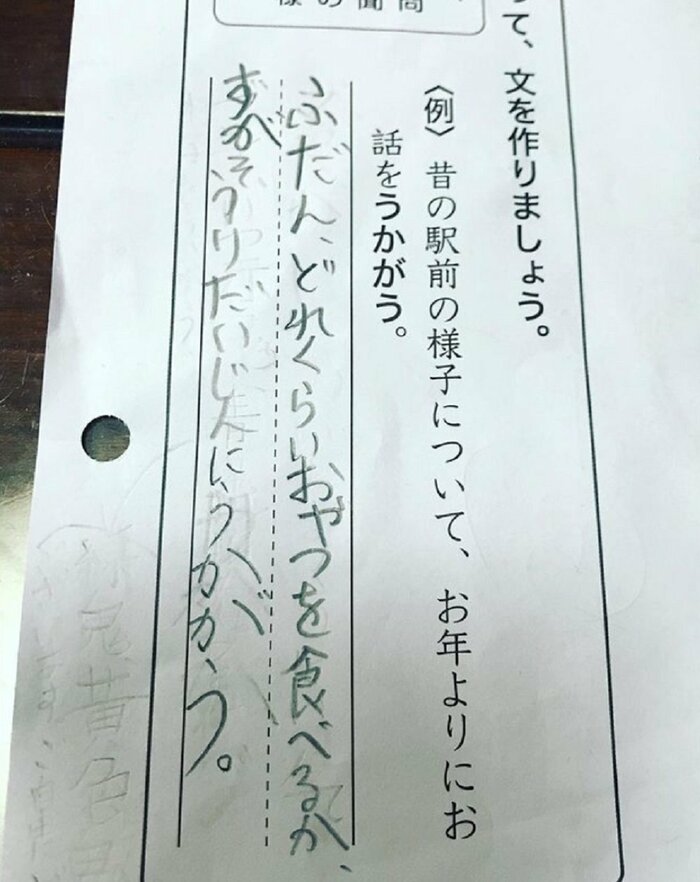 って、文を作りましょう。
〈例〉昔の駅前の様子について、お年よりにお
話をうかがう。
ふだん、どれくらいおやつを食べるか、
すがそうりだいじんにうかがう。
様の聞問